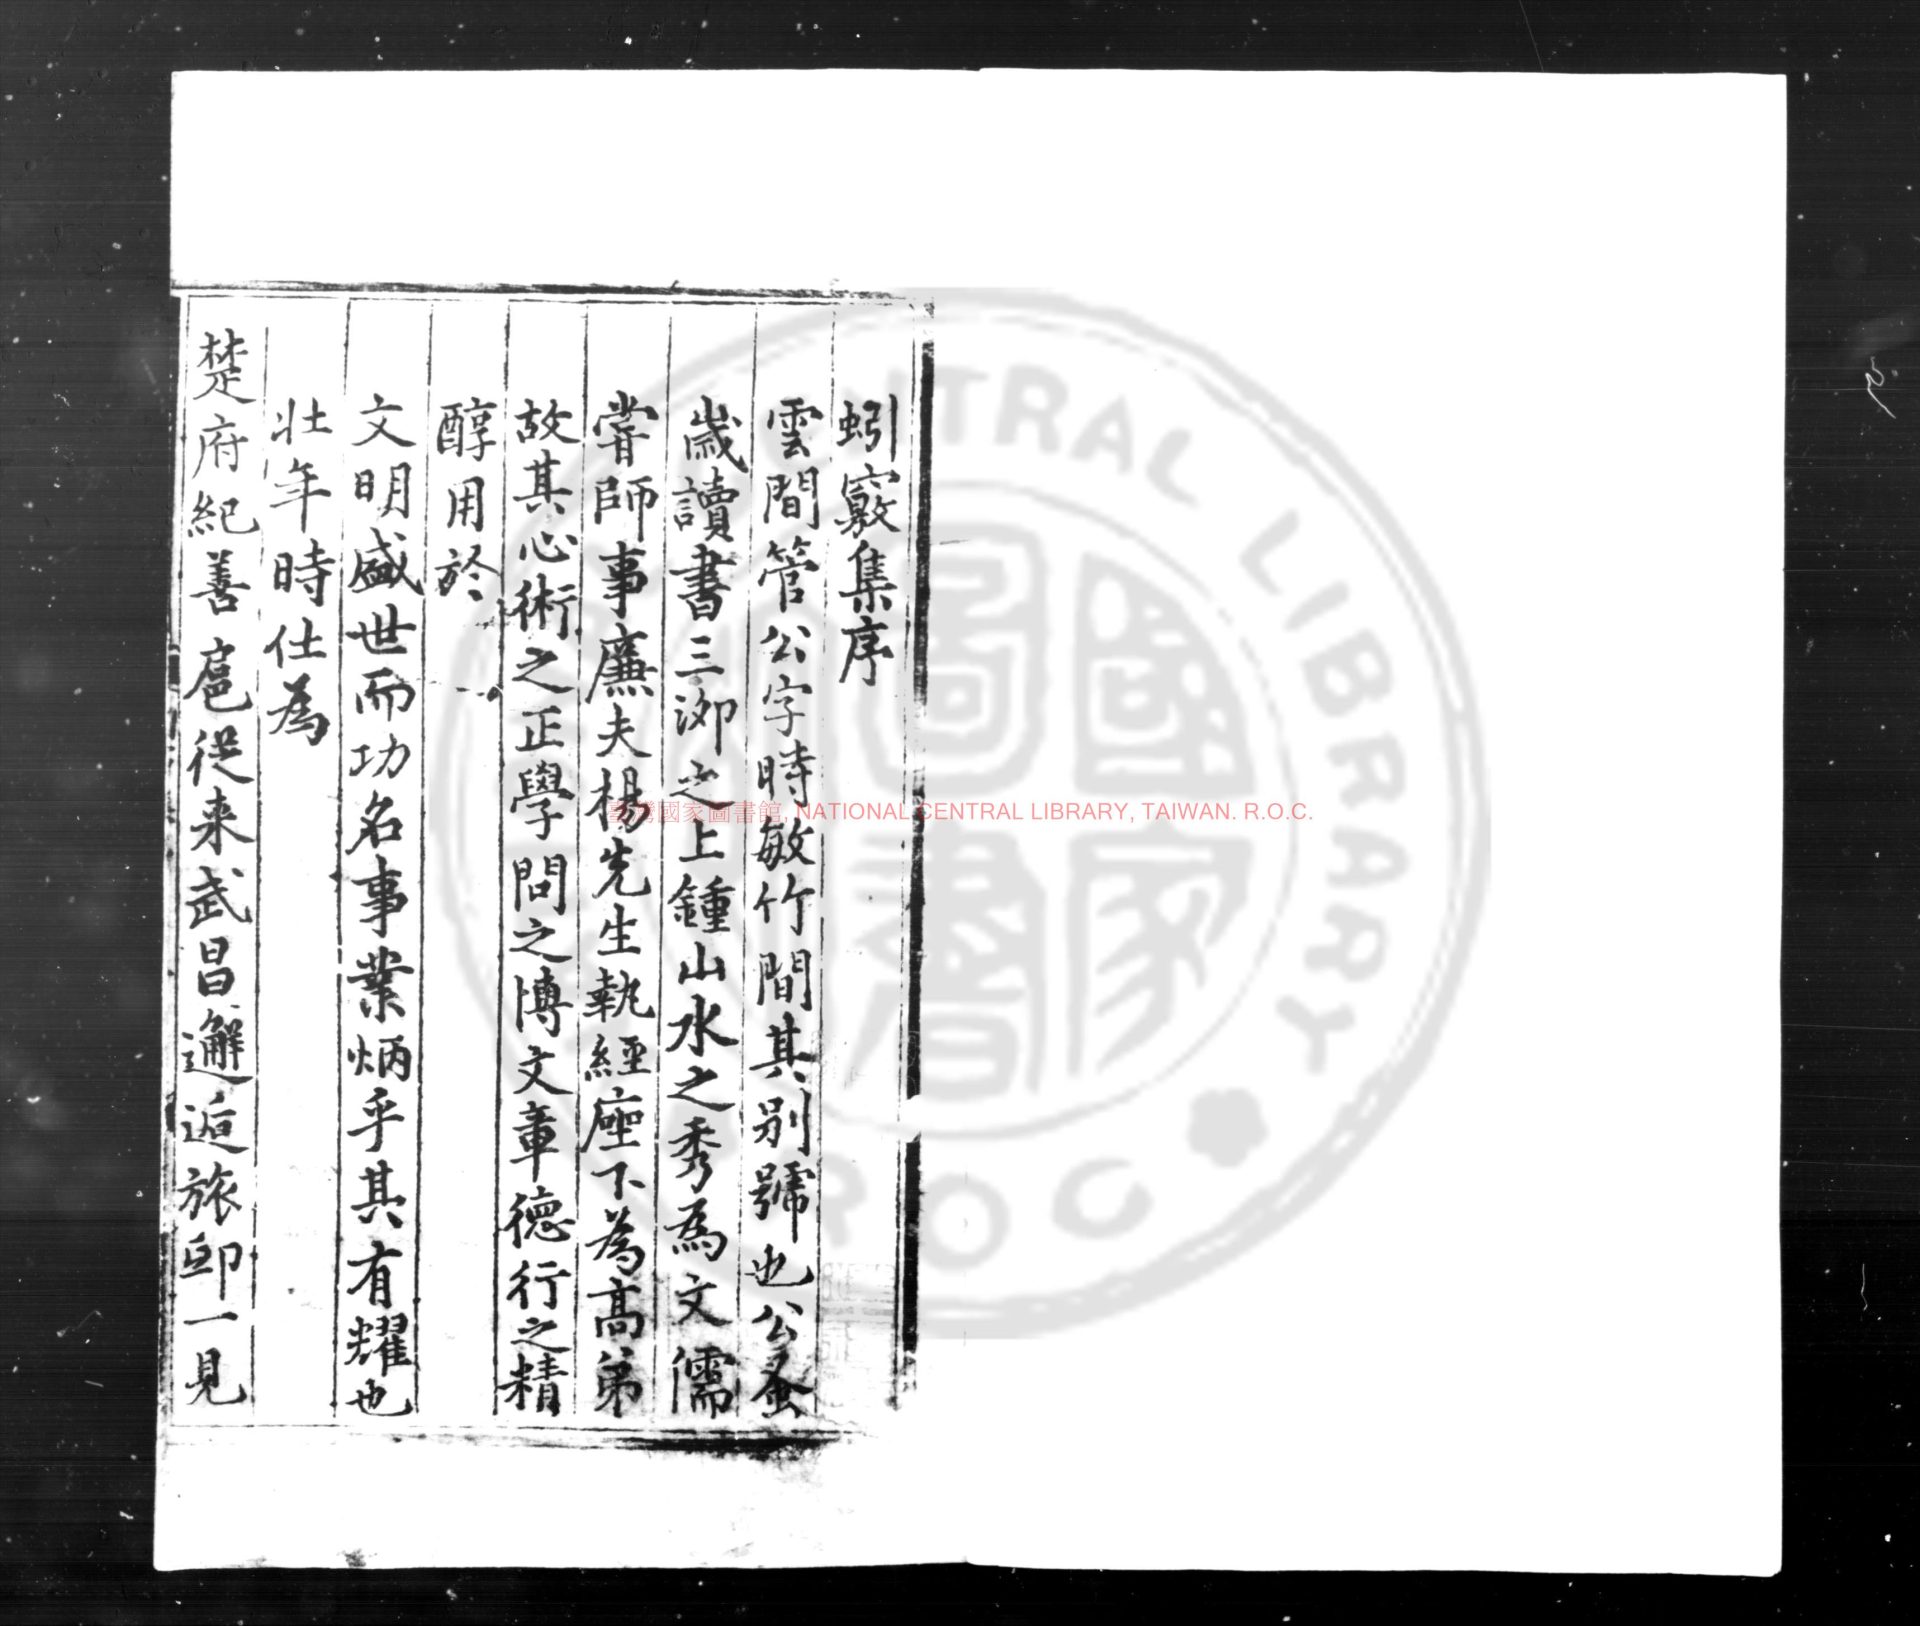 蚓竅集序
雲間管公字時敏竹間其別號也公蚤
歲讀書三泖之上鍾山水之秀為文儒
嘗師事廉夫楊先生執經座下為高弟
故其心術之正學問之博文章德行之精
醇用於
文明盛世而功名事業炳乎其有耀也
壯年時仕為
楚府紀善扈從来武昌邂逅旅邸一見
臺灣國家圖書館, NATIONAL CENTRAL LIBRARY, TAIWAN. R.O.C.
國家圖書
CENTRAL LIBRARY
R O C